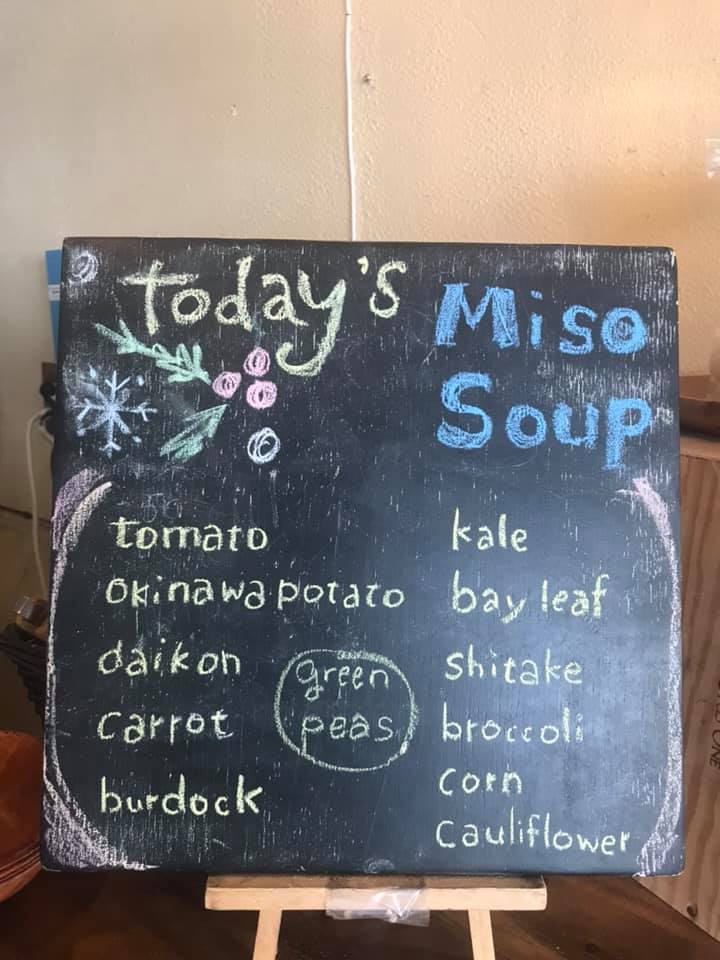 today's
Miso
Soup
tomato
okinawa potato
daikon
carrot
burdock
green
peas
kale
bay leaf
shitake
broccoli
corn
cauliflower